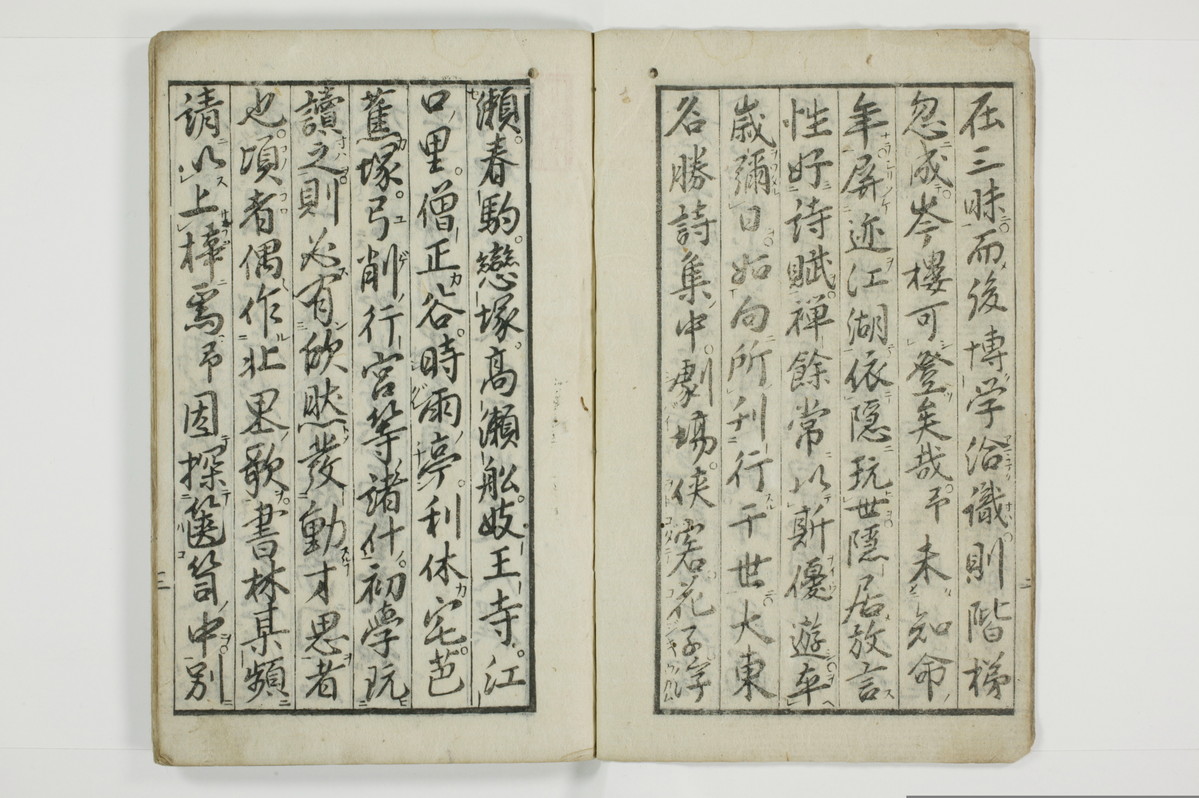 在三昧而後博学洽識則階梯
忽成岑樓可登矣哉予未知命
年屏迹江湖依隠玩世隠居放言
性好詩賦禅餘常以斯優遊卒
歳彌日如向所刊行于世大東
名勝詩集中劇場侠客花子字
瀬春駒戀塚高瀬舩妓王寺江
口里僧正谷時雨亭利休宅芭
蕉塚弓削行宮等諸什初學玩
讀之則必有欣然發動才思者
也頃者偶作北里歌書林某頻
請以上樟焉予因探篋笥中別